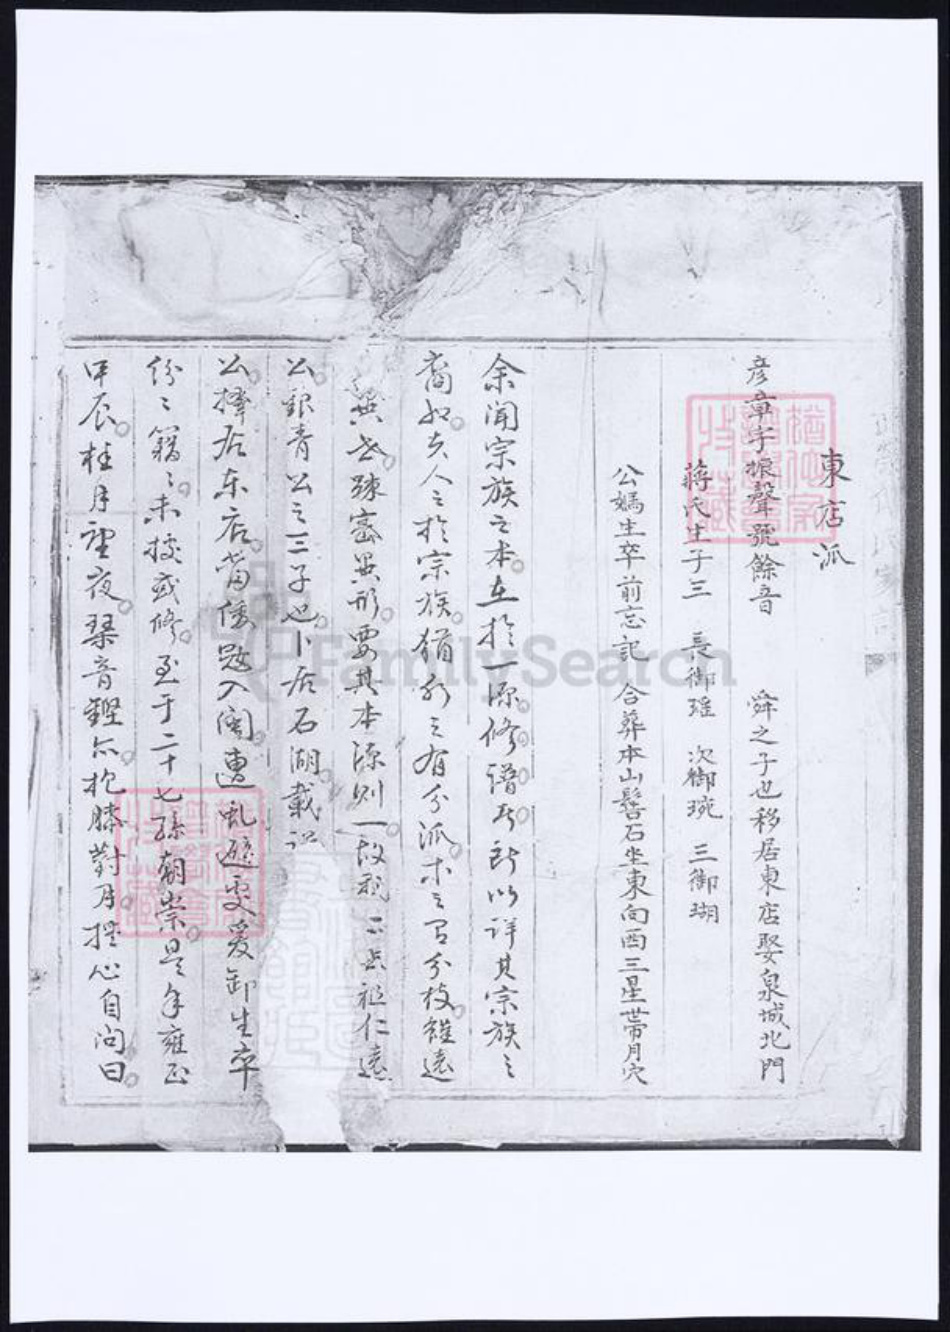 東店派
彦章字振聲號餘音 舜之子也移居東店娶泉城北門
蔣氏生子三 長御瑤 次御琬 三御瑚
公媽生卒前忘記 合葬本山髻石坐東向酉三星帶月穴
余聞宗族之本在於一源修譜者所以詳其宗族之
裔如夫人之於宗族猶水之有分派木之有分枝雖遠
異世踈密異形要其本源則一故我二世祖仁遠
公銀青公之三子也卜居石湖載
公擇居東店當倭毀入閩遭亂避更爰卸生卒
份〻籍〻未據或修至于二十七孫朝崇是年雍正
甲辰桂月望夜琴音鏗尔抱膝對月捫心自问曰
FamilySearch